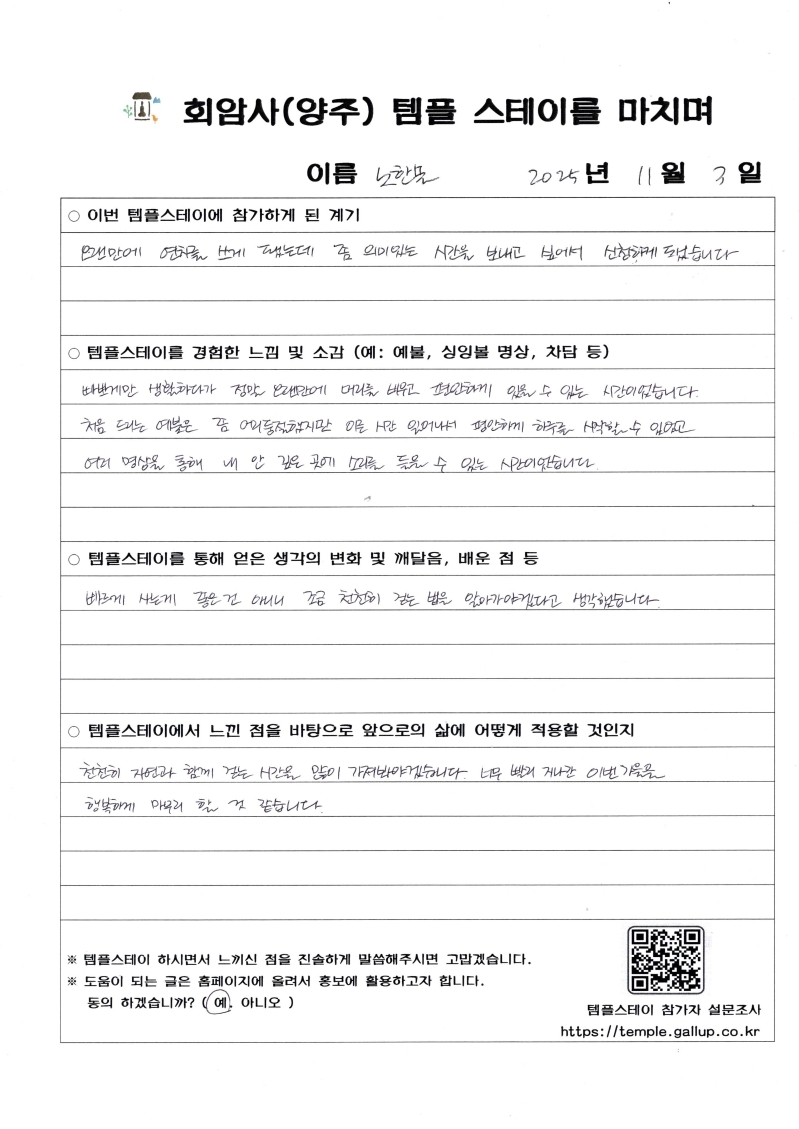 회암사(양주) 템플 스테이를 마치며
이름 노한물 2025년 11월 3일
○ 이번 템플스테이에 참가하게 된 계기
오랜만에 연차를 쓰게 됐는데 좀 의미있는 시간을 보내고 싶어서 신청하게 되었습니다
○ 템플스테이를 경험한 느낌 및 소감 (예: 예불, 싱잉볼 명상, 차담 등)
바쁘게만 생활하다가 정말 오랜만에 머리를 비우고 편안하게 있을 수 있는 시간이었습니다.
처음 드리는 예불은 좀 어리둥절했지만 이른 시간 일어나서 편안하게 하루를 시작할 수 있었고
여러 명상을 통해 내 안 깊은 곳에 소리를 들을 수 있는 시간이었습니다.
○ 템플스테이를 통해 얻은 생각의 변화 및 깨달음, 배운 점 등
빠르게 사는게 좋은건 아니니 조금 천천히 걷는 법을 알아가야겠다고 생각했습니다.
○ 템플스테이에서 느낀 점을 바탕으로 앞으로의 삶에 어떻게 적용할 것인지
천천히 자연과 함께 걷는 시간을 많이 가져봐야겠습니다. 너무 빨리 지나간 이번가을을
행복하게 마무리 할 것 같습니다.
※ 템플스테이 하시면서 느끼신 점을 진솔하게 말씀해주시면 고맙겠습니다.
※ 도움이 되는 글은 홈페이지에 올려서 홍보에 활용하고자 합니다.
동의 하겠습니까? ( 예. 아니오 )
템플스테이 참가자 설문조사
https://temple.gallup.co.kr